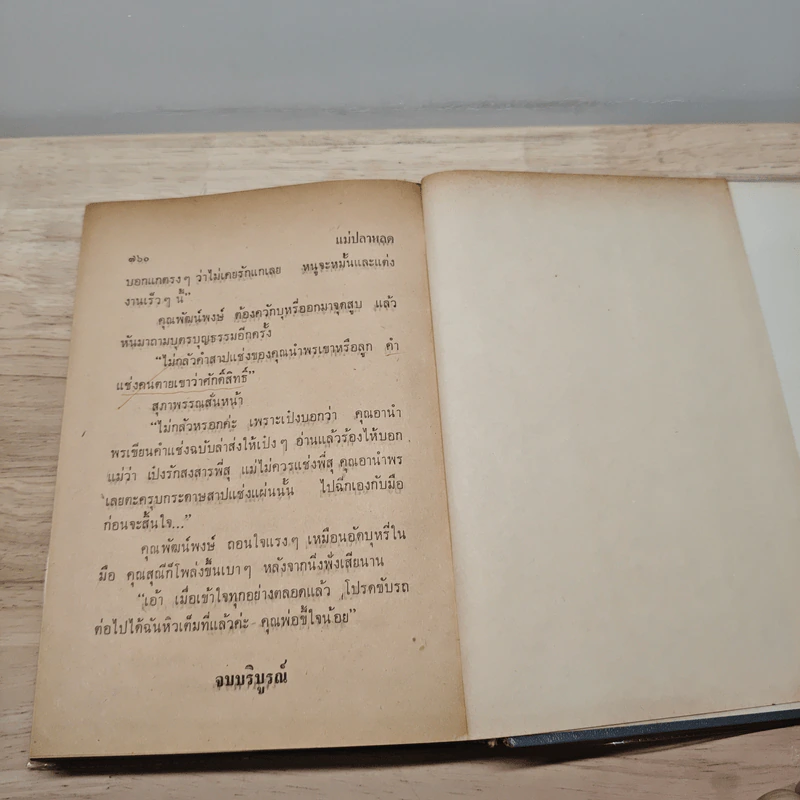 ๗๖๑
แม่ปลาหลด
บอกแกตรง ๆ ว่าไม่เคยรักแกเลย หนูจะหมั้นและแต่ง
งานเร็ว ๆ นี้”
คุณพัฒน์พงษ์ ต้องควักบุหรี่ออกมาจุดสูบ แล้ว
หันมาถามบุตรบุญธรรมอีกครั้ง
“ไม่กลัวคำสาปแช่งของคุณนำพรเขาหรือลูก คำ
แช่งคนตายเขาว่าศักดิ์สิทธิ์”
สุภาพรรณสั่นหน้า
“ไม่กลัวหรอกค่ะ เพราะเป๋งบอกว่า คุณอานำ
พรเขียนคำแช่งฉบับล่าส่งให้เป๋ง ๆ อ่านแล้วร้องไห้บอก
แม่ว่า เป๋งรักสงสารพี่สุ แม่ไม่ควรแช่งพี่สุ คุณอานำพร
เลยตะครุบกระดาษสาปแช่งแผ่นนั้น ไปฉีกเองกับมือ
ก่อนจะสิ้นใจ...”
คุณพัฒน์พงษ์ ถอนใจแรง ๆ เหมือนอัดบุหรี่ใน
มือ คุณสุณีก็โพล่งขึ้นเบา ๆ หลังจากนั่งฟังเสียนาน
“เอ้า เมื่อเข้าใจทุกอย่างตลอดแล้ว โปรดขับรถ
ต่อไปได้ฉันหิวเต็มที่แล้วค่ะ คุณพ่อขี้ใจน้อย”
จบบริบูรณ์